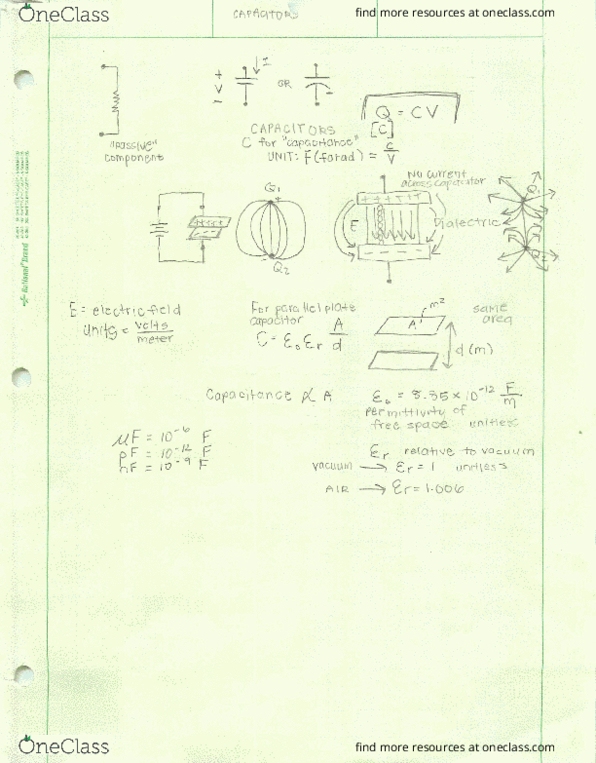 OneClass
find more resources at oneclass.com
CAPACITORS
I
+
V
-
OR
Q = CV
[C]
CAPACITORS
C for "capacitance"
UNIT: F (farad) = C/V
"Passive"
component
No current
across capacitor
Q1
+
Q1
++++
E
Dialectric
-
Q2
Q2
E = electric field
units = volts/meter
For parallel plate
capacitor
C = ε₀ εr A/d
m²
A
same
area
d (m)
Capacitance ∝ A
ε₀ = 8.85 × 10⁻¹² F/m
permittivity of
free space unitless
μF = 10⁻⁶ F
pF = 10⁻¹² F
nF = 10⁻⁹ F
εr relative to vacuum
vacuum → εr = 1 unitless
AIR → εr = 1.006
OneClass
find more resources at oneclass.com